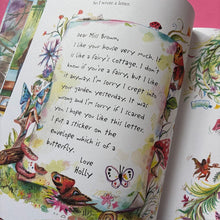 So I wrote a letter.
Dear Miss Brown,
I like your house very much. It
is like a fairy's cottage. I don't
know if you're a fairy, but I like
it anyway. I'm sorry I crept into
your garden yesterday. It was
wrong and I'm sorry if I scared
you. I hope you like this letter.
I put a sticker on the
envelope which is of a
butterfly.
Love
Holly